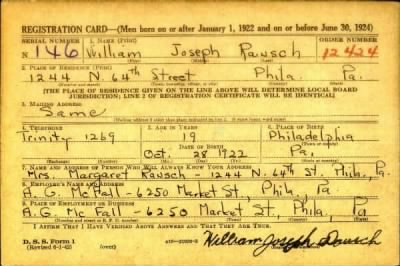 REGISTRATION CARD—(Men born on or after January 1, 1922 and on or before June 30, 1924)
SERIAL NUMBER 1. NAME (Print) ORDER NUMBER
N 146 William Joseph Rausch 12424
2. PLACE OF RESIDENCE (Print)
1244 N. 64th Street Phila. Pa.
[THE PLACE OF RESIDENCE GIVEN ON THE LINE ABOVE WILL DETERMINE LOCAL BOARD
JURISDICTION; LINE 2 OF REGISTRATION CERTIFICATE WILL BE IDENTICAL]
3. MAILING ADDRESS
Same
4. TELEPHONE 5. AGE IN YEARS 6. PLACE OF BIRTH
Trinity 1269 19 Philadelphia
DATE OF BIRTH
Oct. 28 1922 Pa.
7. NAME AND ADDRESS OF PERSON WHO WILL ALWAYS KNOW YOUR ADDRESS
Mrs. Margaret Rausch - 1244 N. 64th St. Phila., Pa.
8. EMPLOYER'S NAME AND ADDRESS
A. G. McFall - 6250 Market St., Phila, Pa
9. PLACE OF EMPLOYMENT OR BUSINESS
A. G. McFall - 6250 Market St., Phila., Pa
I AFFIRM THAT I HAVE VERIFIED ABOVE ANSWERS AND THAT THEY ARE TRUE.
D. S. S. Form 1
(Revised 6-1-42) (over) William Joseph Rausch